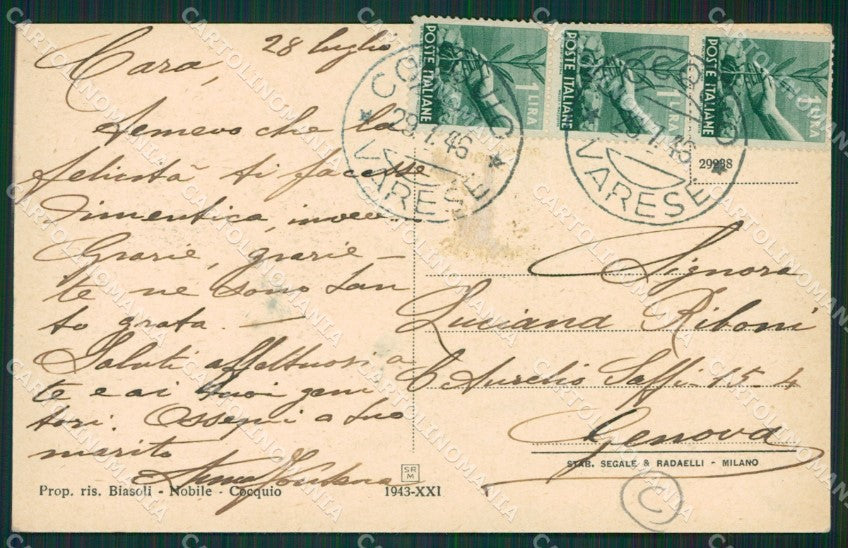 28 luglio
Cara,
Temevo che la
felicità ti facesse
dimentica, invece
Grazie, grazie -
te ne sono tan
to grata. -
Saluti affettuosi a
te e ai tuoi geni
tori. Ossequi a tuo
marito
Prop. ris. Biasoli - Nobile - Cocquio
SRM
1943-XXI
POSTE ITALIANE
1 LIRA
POSTE ITALIANE
1 LIRA
POSTE ITALIANE
1 LIRA
COCQUIO
29.7.46
VARESE
COCQUIO
29.7.46
VARESE
29938
Signora
Luciana Riboni
Aurelio Saffi - 15 - 4
Genova
STAB. SEGALE & RADAELLI - MILANO
C
CARTOLINOMANIA